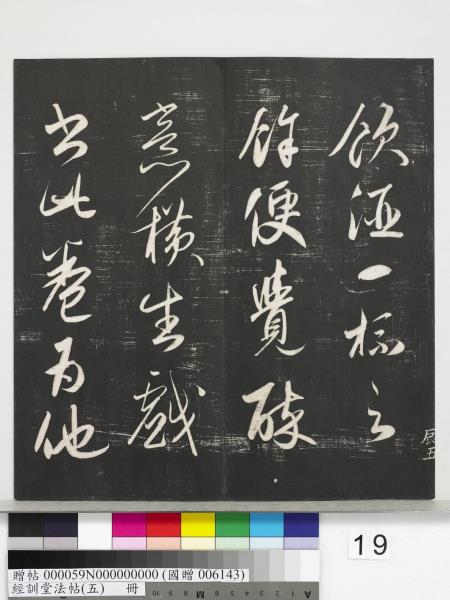 飲酒一杯之
餘便覺醉
意橫生戲
書此卷為他
辰五
19
贈帖 000059N000000000 (國贈 006143)
經訓堂法帖(五) 冊